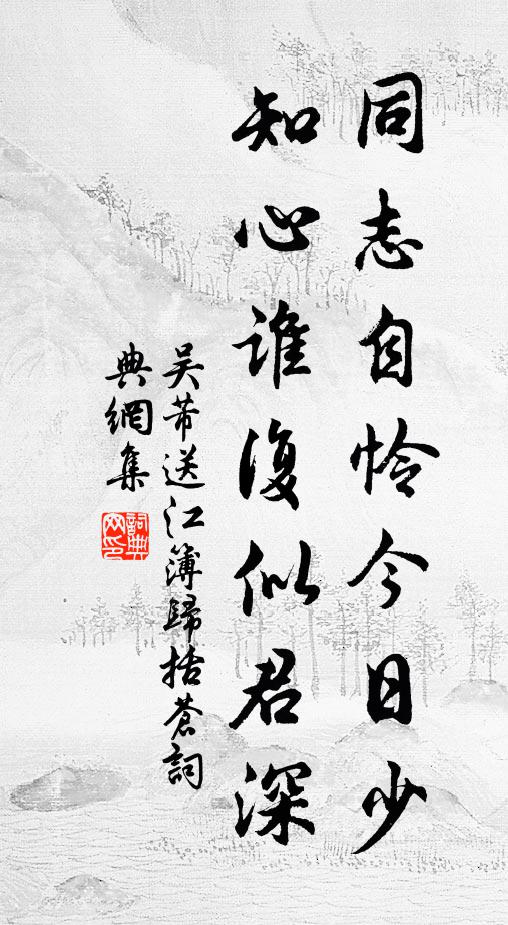 同志自怜今日少
知心谁復似君深
吴芾送江簿歸括蒼詞
典網集
詞典網印